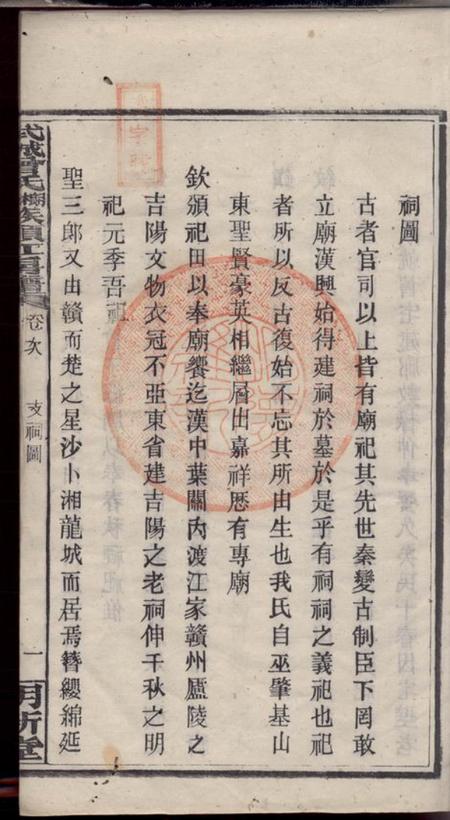 祠圖
古者官司以上皆有廟祀其先世秦變古制臣下罔敢
立廟漢興始得建祠於墓於是乎有祠祠之義祀也祀
者所以反古復始不忘其所由生也我氏自巫肇基山
東聖賢豪英相繼層出嘉祥歷有專廟
欽頒祀田以奉廟饗迄漢中葉關內渡江家贛州廬陵之
吉陽文物衣冠不亞東省建吉陽之老祠伸千秋之明
祀元季吾祖
聖三郎又由贛而楚之星沙卜湘龍城而居焉簪纓綿延
武城曾氏
卷次
支祠圖
一